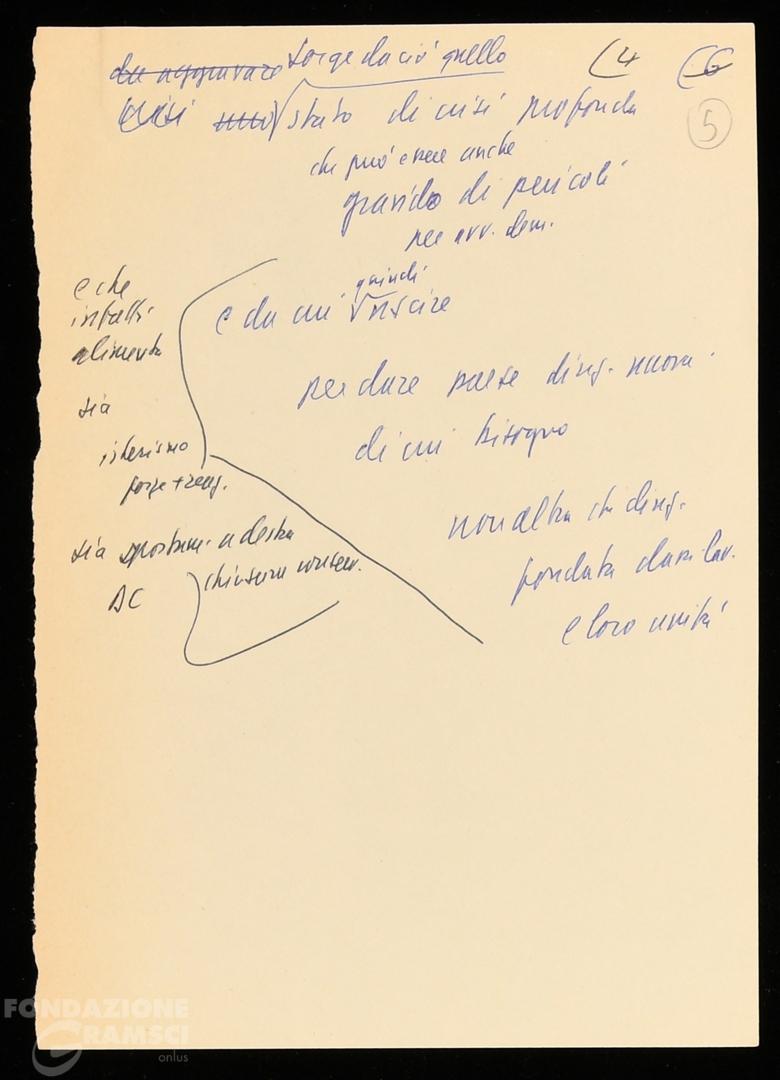 da aggravare sorge da ciò quello
(4
(6
5
crisi uno stato di crisi profonda
che può essere anche
gravido di pericoli
per avv. dem.
e da cui quindi uscire
per dare paese direz. nuova
di cui bisogno
non altra che direz.
fondata da un lav.
e loro unità
e che
infatti
alimenta
sia
isterismo
forze + reaz.
sia spostam. a destra
chiusura conserv.
DC
FONDAZIONE
GRAMSCI
onlus